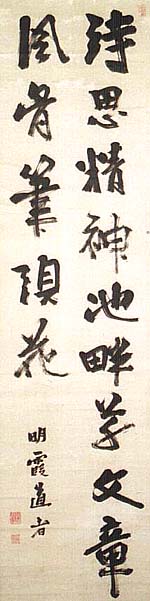 詩思精神池畔草文章
風骨筆頭花
明霞道者